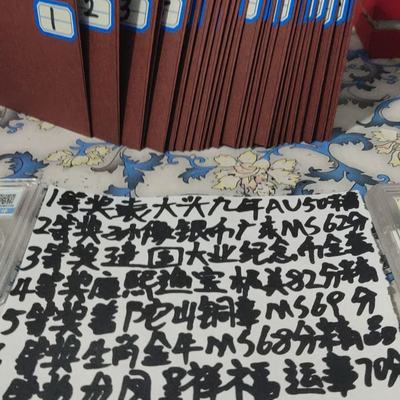 1 2 3
1等奖袁大头九年AU50精
2等奖孙像银币广东MS62分
3等奖建国大业纪念币全套
4等奖康熙通宝极美82分精
5等奖普陀山铜章MS69分
等奖生肖金牛MS68分精品
等奖龙凤呈祥福运章70分